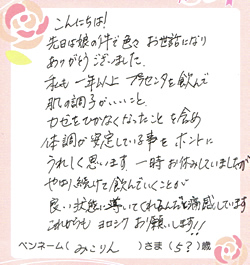 こんにちは!
先日は娘の件で色々お世話になり
ありがとうございました。
私も一年以上プラセンタを飲んで
肌の調子がいいこと、
カゼをひかなくなったことを含め
体調が安定している事をホントに
うれしく思います。一時お休みしていましたが
やはり続けて飲んでいくことが
良い状態に導いてくれるんだなと痛感しています
これからもヨロシクお願いします!!
ペンネーム(みこりん)さま(5?)歳